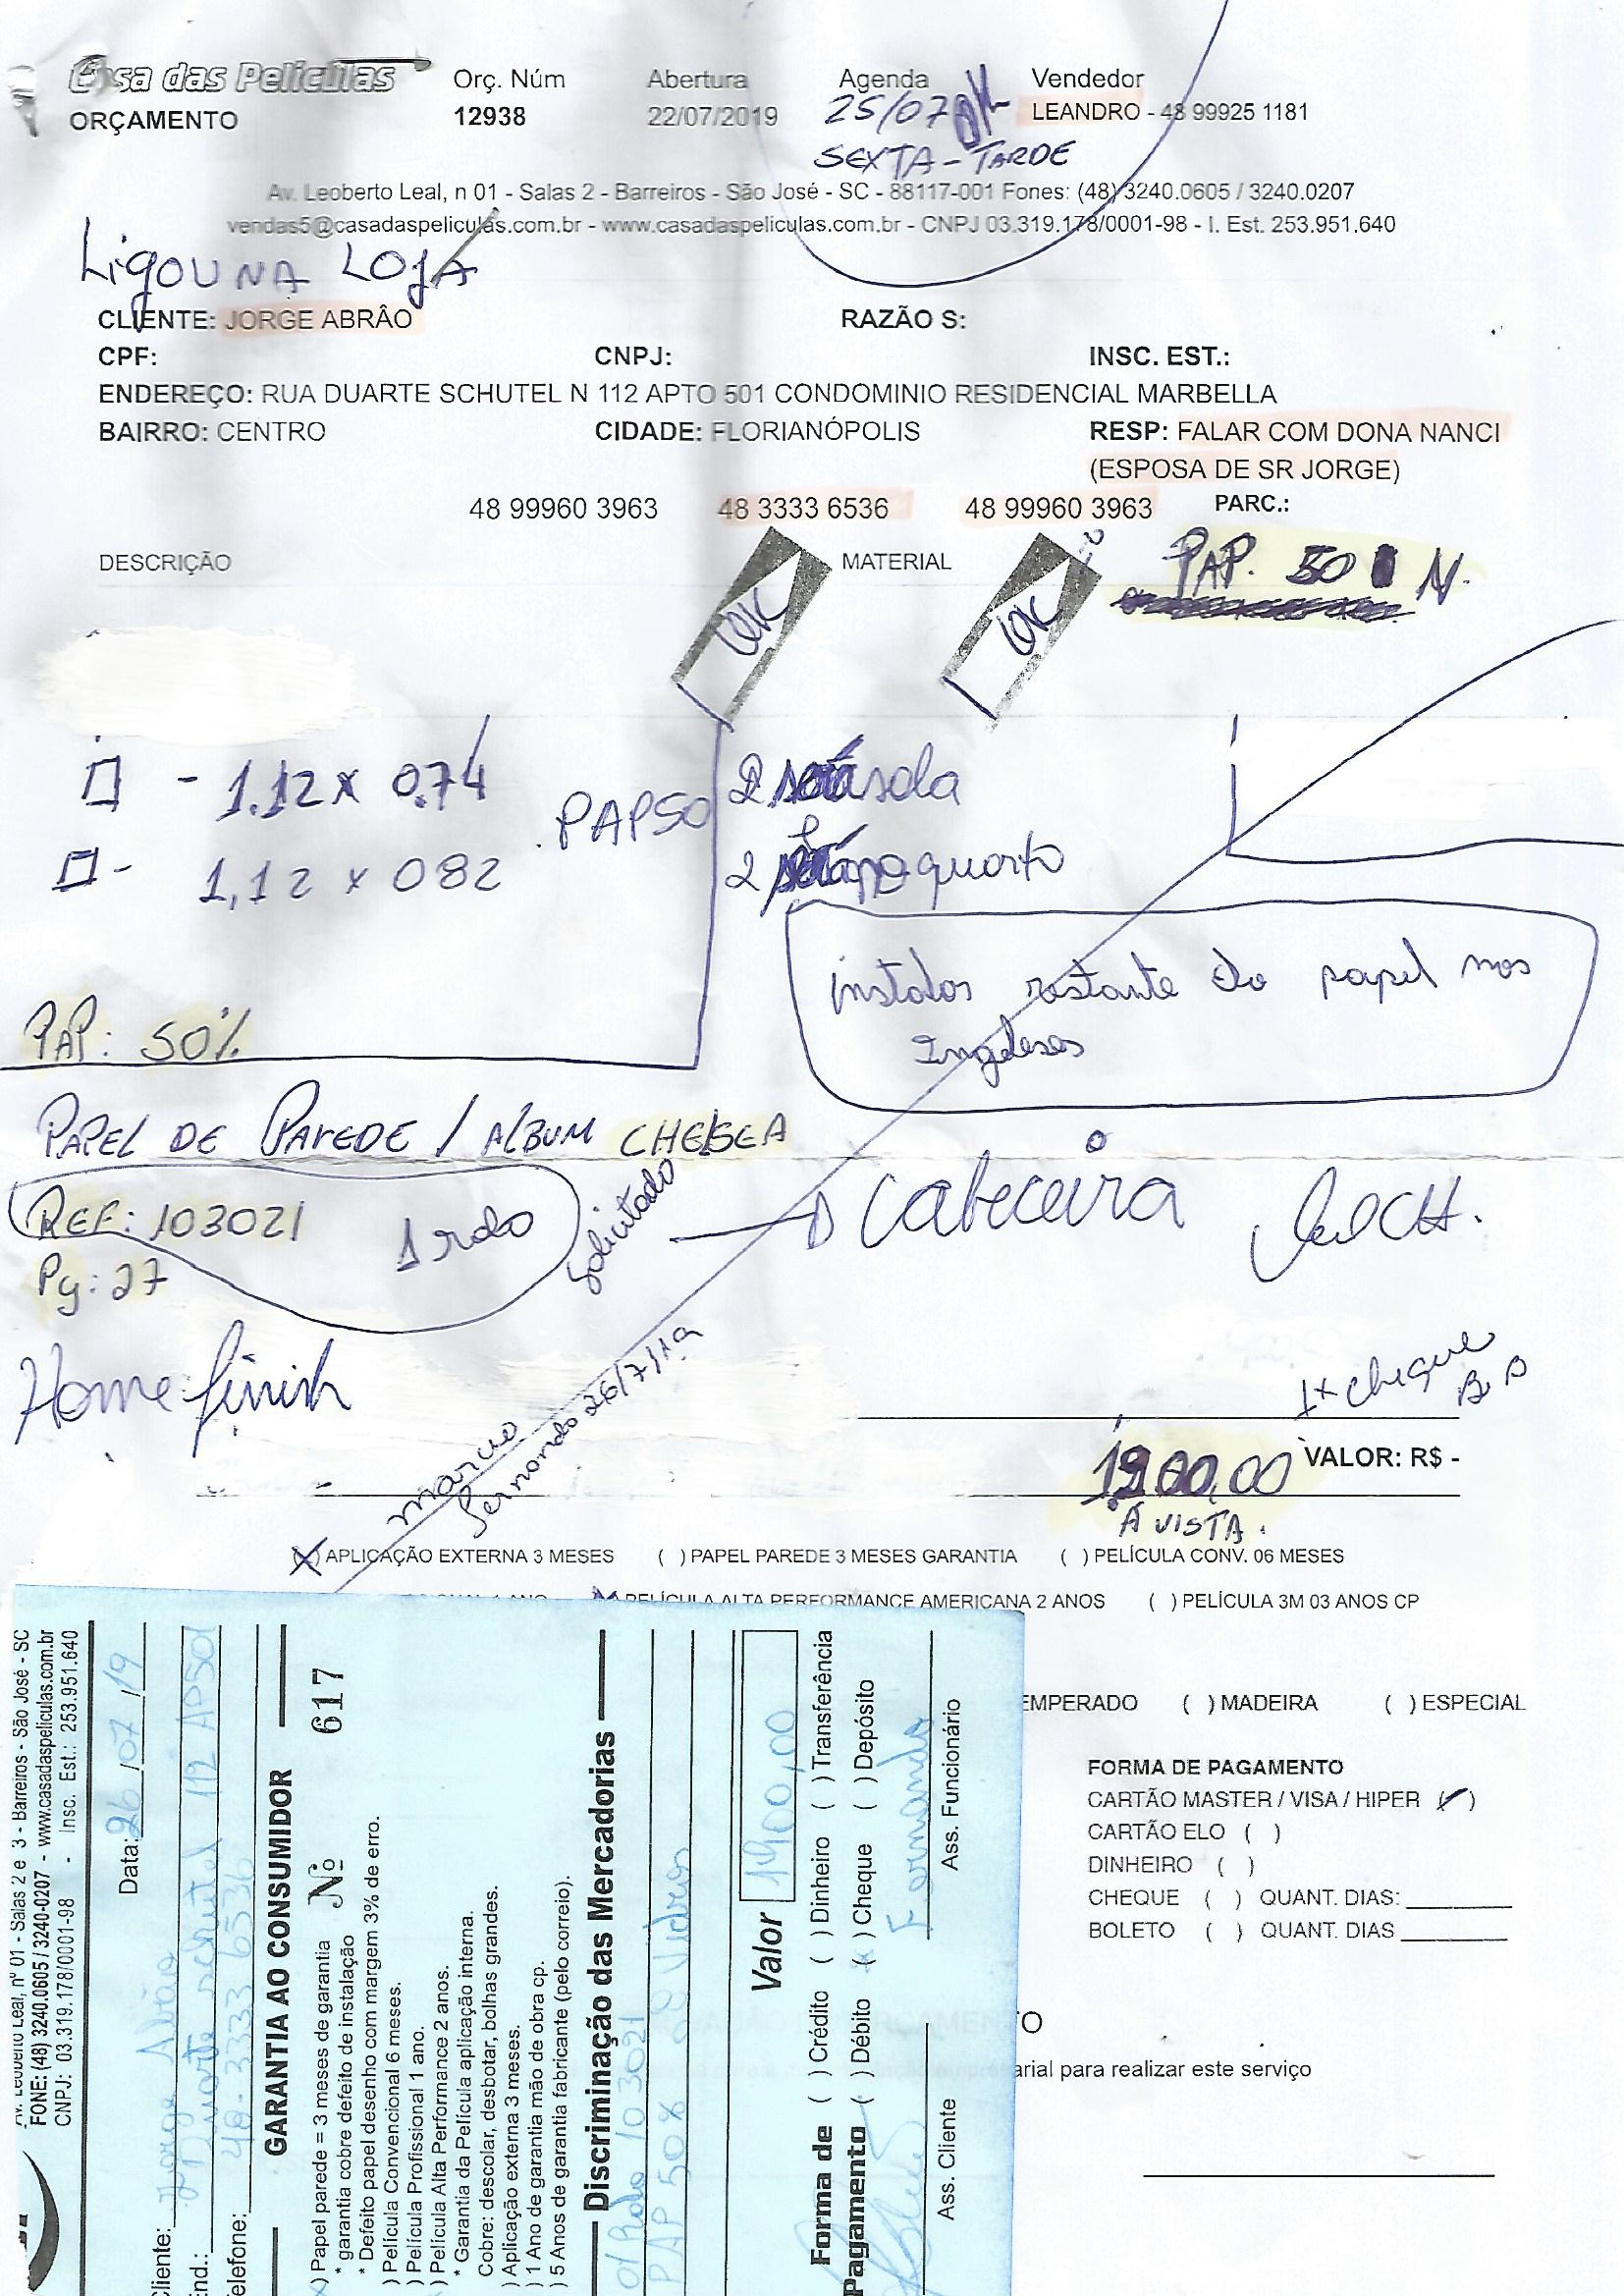 Casa das Películas
ORÇAMENTO
Orç. Núm
12938
Abertura
22/07/2019
Agenda
25/07
SEXTA - TARDE
Vendedor
LEANDRO - 48 99925 1181
Av. Leoberto Leal, n 01 - Salas 2 - Barreiros - São José - SC - 88117-001 Fones: (48) 3240.0605 / 3240.0207
vendas5@casadaspeliculas.com.br - www.casadaspeliculas.com.br - CNPJ 03.319.178/0001-98 - I. Est. 253.951.640
LigOU NA LOJA
CLIENTE: JORGE ABRÂO RAZÃO S:
CPF: CNPJ: INSC. EST.:
ENDEREÇO: RUA DUARTE SCHUTEL N 112 APTO 501 CONDOMINIO RESIDENCIAL MARBELLA
BAIRRO: CENTRO CIDADE: FLORIANÓPOLIS RESP: FALAR COM DONA NANCI
(ESPOSA DE SR JORGE)
48 99960 3963 48 3333 6536 48 99960 3963 PARC.:
DESCRIÇÃO MATERIAL PAP. 50 N.
OK OK
- 1.12 x 0.74 2 sala
PAP50
- 1,12 x 082 2 quarto
instalar restante do papel nos
Ingleses
PAP: 50%
PAPEL DE PAREDE / ALBUM CHELSEA
REF: 103021 1 rolo solicitado Cabeceira
Pg: 27
Home finish
1x cheque
marcio
Fernando 26/7/19
VALOR: R$ -
Á VISTA.
(X) APLICAÇÃO EXTERNA 3 MESES ( ) PAPEL PAREDE 3 MESES GARANTIA ( ) PELÍCULA CONV. 06 MESES
PELÍCULA ALTA PERFORMANCE AMERICANA 2 ANOS ( ) PELÍCULA 3M 03 ANOS CP
EMPERADO ( ) MADEIRA ( ) ESPECIAL
FORMA DE PAGAMENTO
CARTÃO MASTER / VISA / HIPER ( )
CARTÃO ELO ( )
DINHEIRO ( )
CHEQUE ( ) QUANT. DIAS:
BOLETO ( ) QUANT. DIAS
arial para realizar este serviço
Av. Leoberto Leal, nº 01 - Salas 2 e 3 - Barreiros - São José - SC
FONE: (48) 3240.0605 / 3240-0207 - www.casadaspeliculas.com.br
CNPJ: 03.319.178/0001-98 - Insc. Est.: 253.951.640
Data: 26/07/19
Cliente: Jorge Abrão
End.: Duarte schutel 112 AP501
Telefone: 48-3333 6536
GARANTIA AO CONSUMIDOR
Nº 617
) Papel parede = 3 meses de garantia
* garantia cobre defeito de instalação
* Defeito papel desenho com margem 3% de erro.
) Película Convencional 6 meses.
) Película Profissional 1 ano.
) Película Alta Performance 2 anos.
* Garantia da Película aplicação interna.
Cobre: descolar, desbotar, bolhas grandes.
) Aplicação externa 3 meses.
) 1 Ano de garantia mão de obra cp.
) 5 Anos de garantia fabricante (pelo correio).
Discriminação das Mercadorias
01 Rolo 103021
PAP 50% Vidros
Valor 1900,00
Forma de Pagamento
( ) Crédito ( ) Dinheiro ( ) Transferência
( ) Débito (x) Cheque ( ) Depósito
Fernando
Ass. Cliente Ass. Funcionário